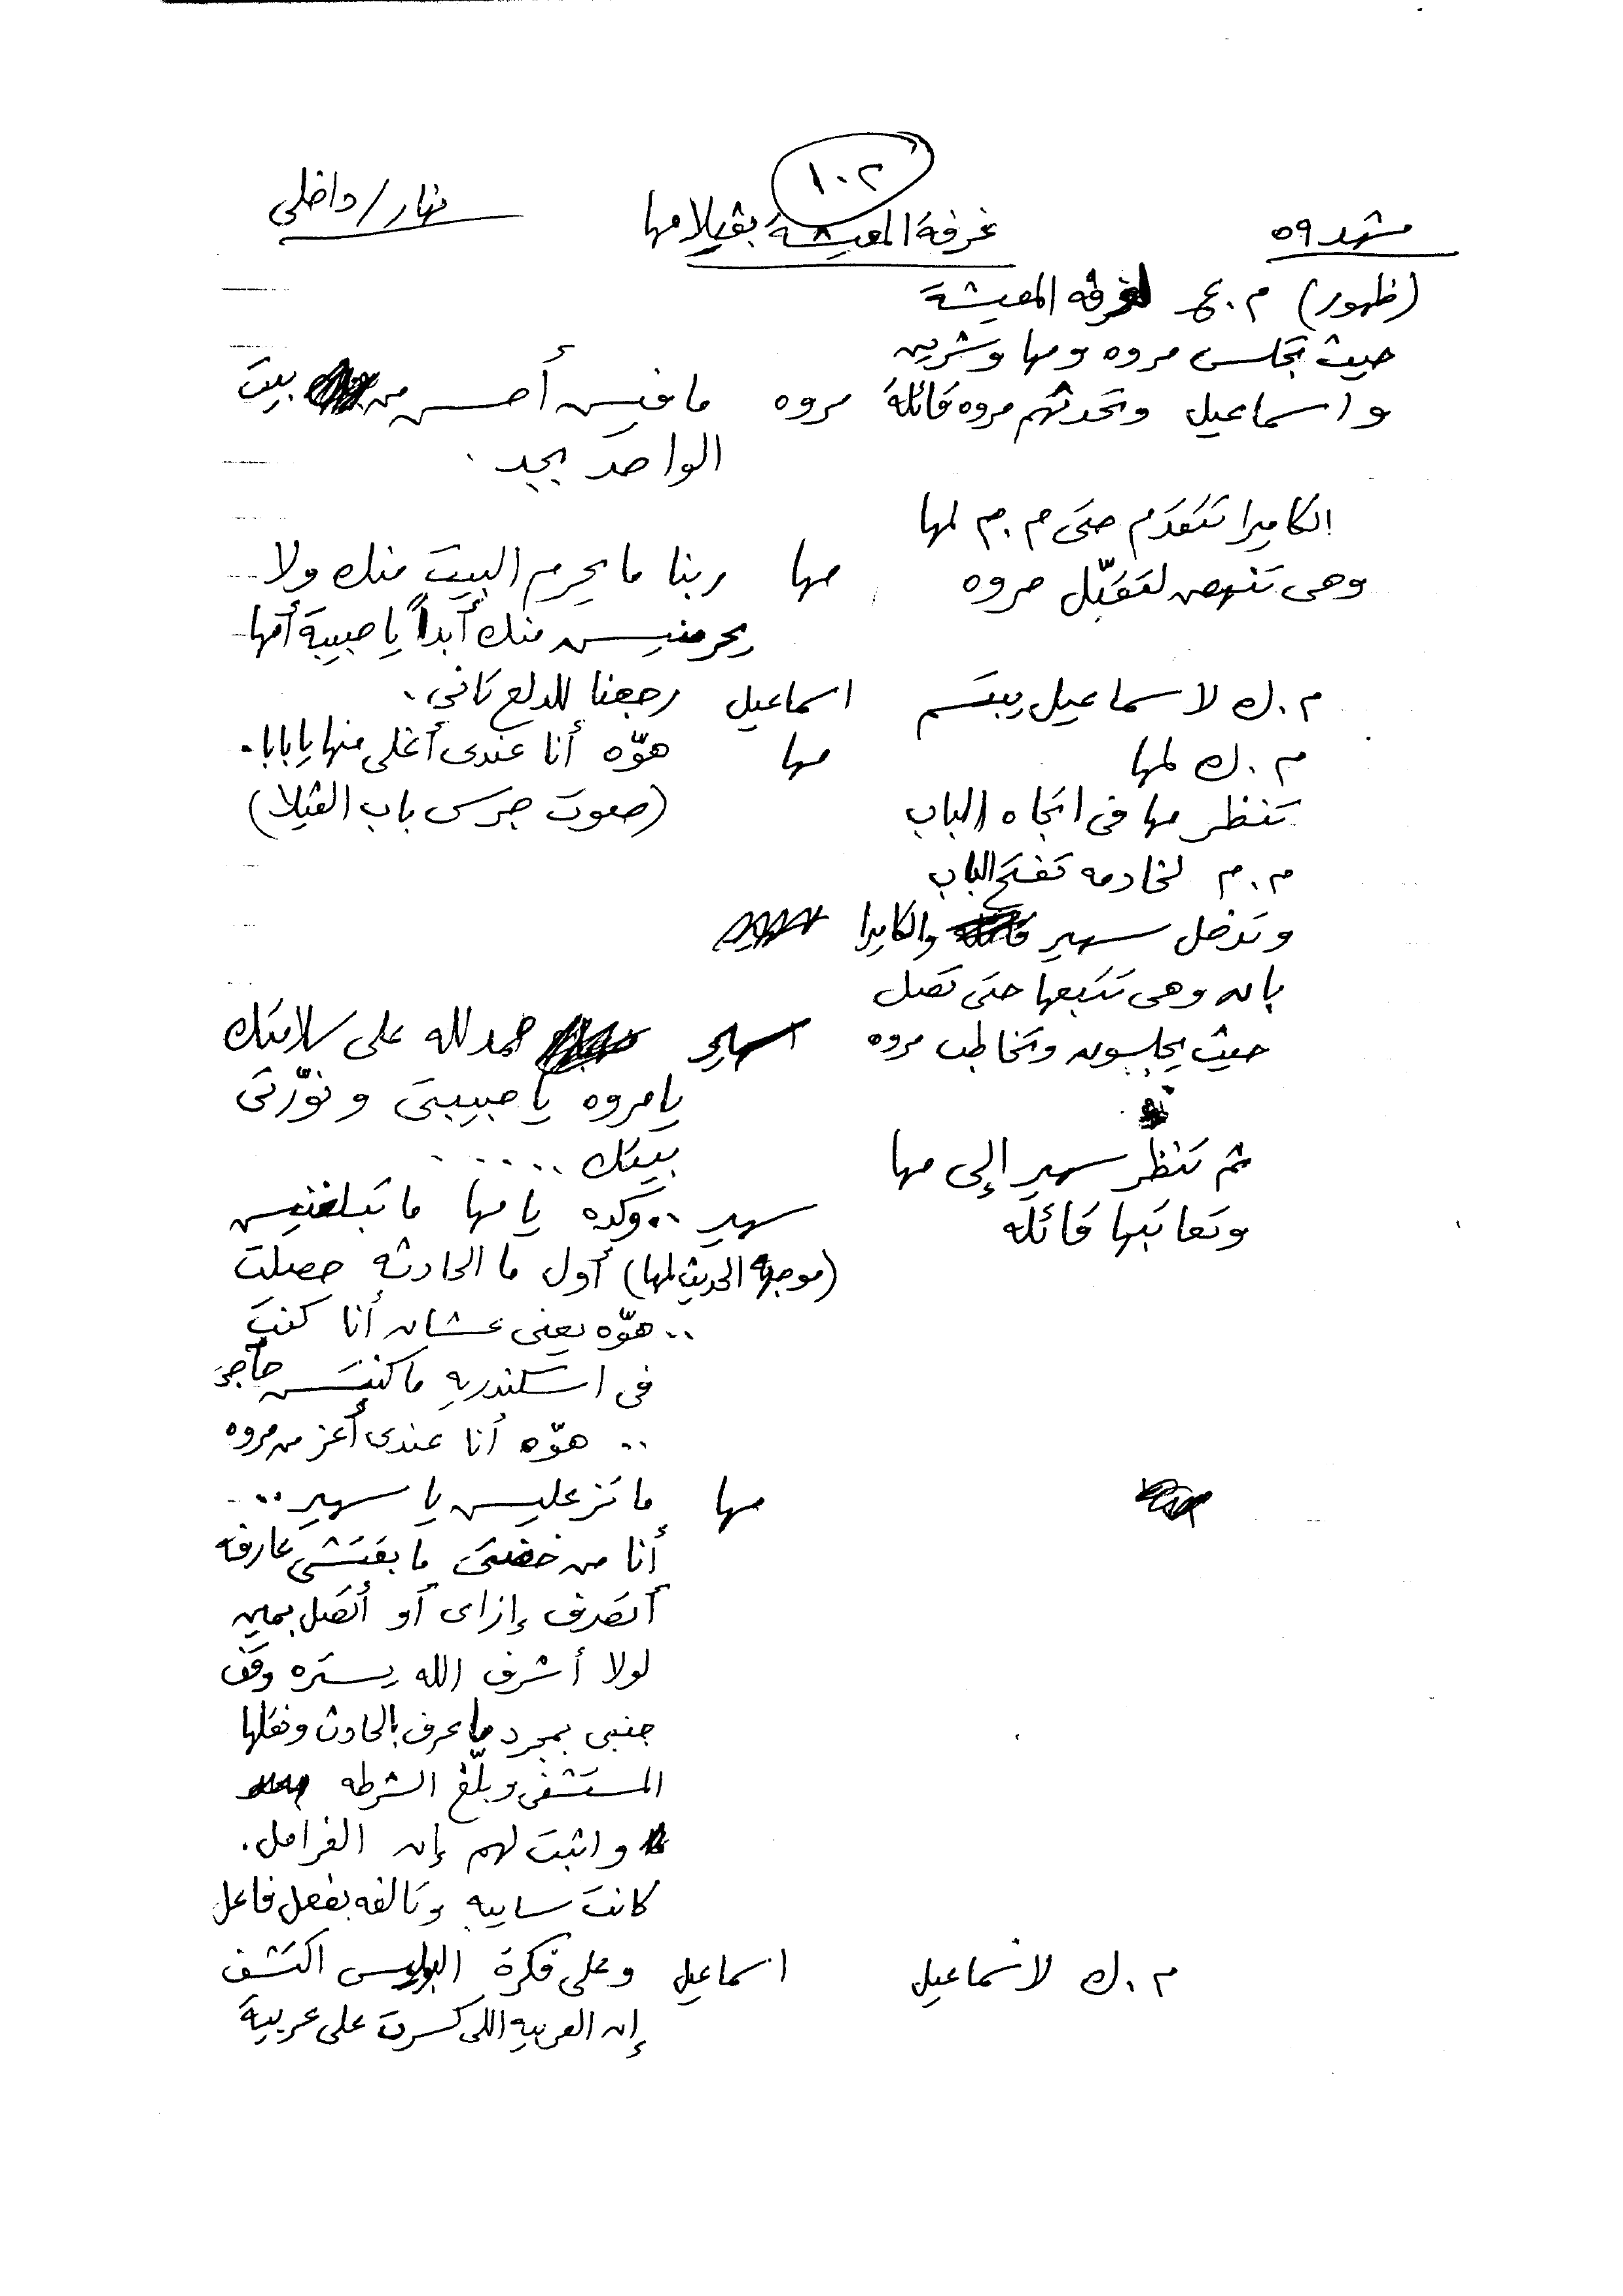 ١٠٢
مشهد ٥٩ غرفة المعيشة بڤيلا مها نهار/داخلى
(ظهور) م.ع لغرفه المعيشة
حيث تجلس مروه ومها وشرين
واسماعيل وتحدثهم مروه قائلة مروه مافيش أحسن من بيت
الواحد بجد.
الكاميرا تتقدم حتى م.م لمها
وهى تنهض لتقبّل مروه مها ربنا ما يحرم البيت منك ولا
يحرمنيش منك أبداً يا حبيبة أمها
م.ك لاسماعيل يبتسم اسماعيل رجعنا للدلع تانى.
م.ك لمها مها هوّه أنا عندى أغلى منها يا بابا.
تنظر مها فى اتجاه الباب (صوت جرس باب الڤيلا)
م.م لخادمه تفتح الباب
وتدخل سهير والكاميرا
بان وهى تتبعها حتى تصل
حيث يجلسون وتخاطب مروه سهير حمدلله على سلامتك
يا مروه يا حبيبتى ونوّرتى
بيتك .....
ثم تنظر سهير إلى مها
وتعاتبها قائله سهير ..وكده يا مها ما تبلغنيش
(موجهة الحديث لمها) أول ما الحادثه حصلت
..هوّه يعنى عشان أنا كنت
فى اسكندريه ما كنتش حاجى
.. هوّه أنا عندى أعز من مروه
مها ما تزعليش يا سهير ..
أنا من خضتى ما بقتش عارفه
أتصرف إزاى أو أتصل بمين
لولا أشرف الله يستره وقف
جنبى بمجرد ما عرف بالحادث ونقلها
المستشفى وبلّغ الشرطه
واثبت لهم إن الفرامل.
كانت سايبه وتالفه بفعل فاعل
م.ك لاسماعيل اسماعيل وعلى فكرة البوليس اكتشف
إن العربيه اللى كسرت على عربية